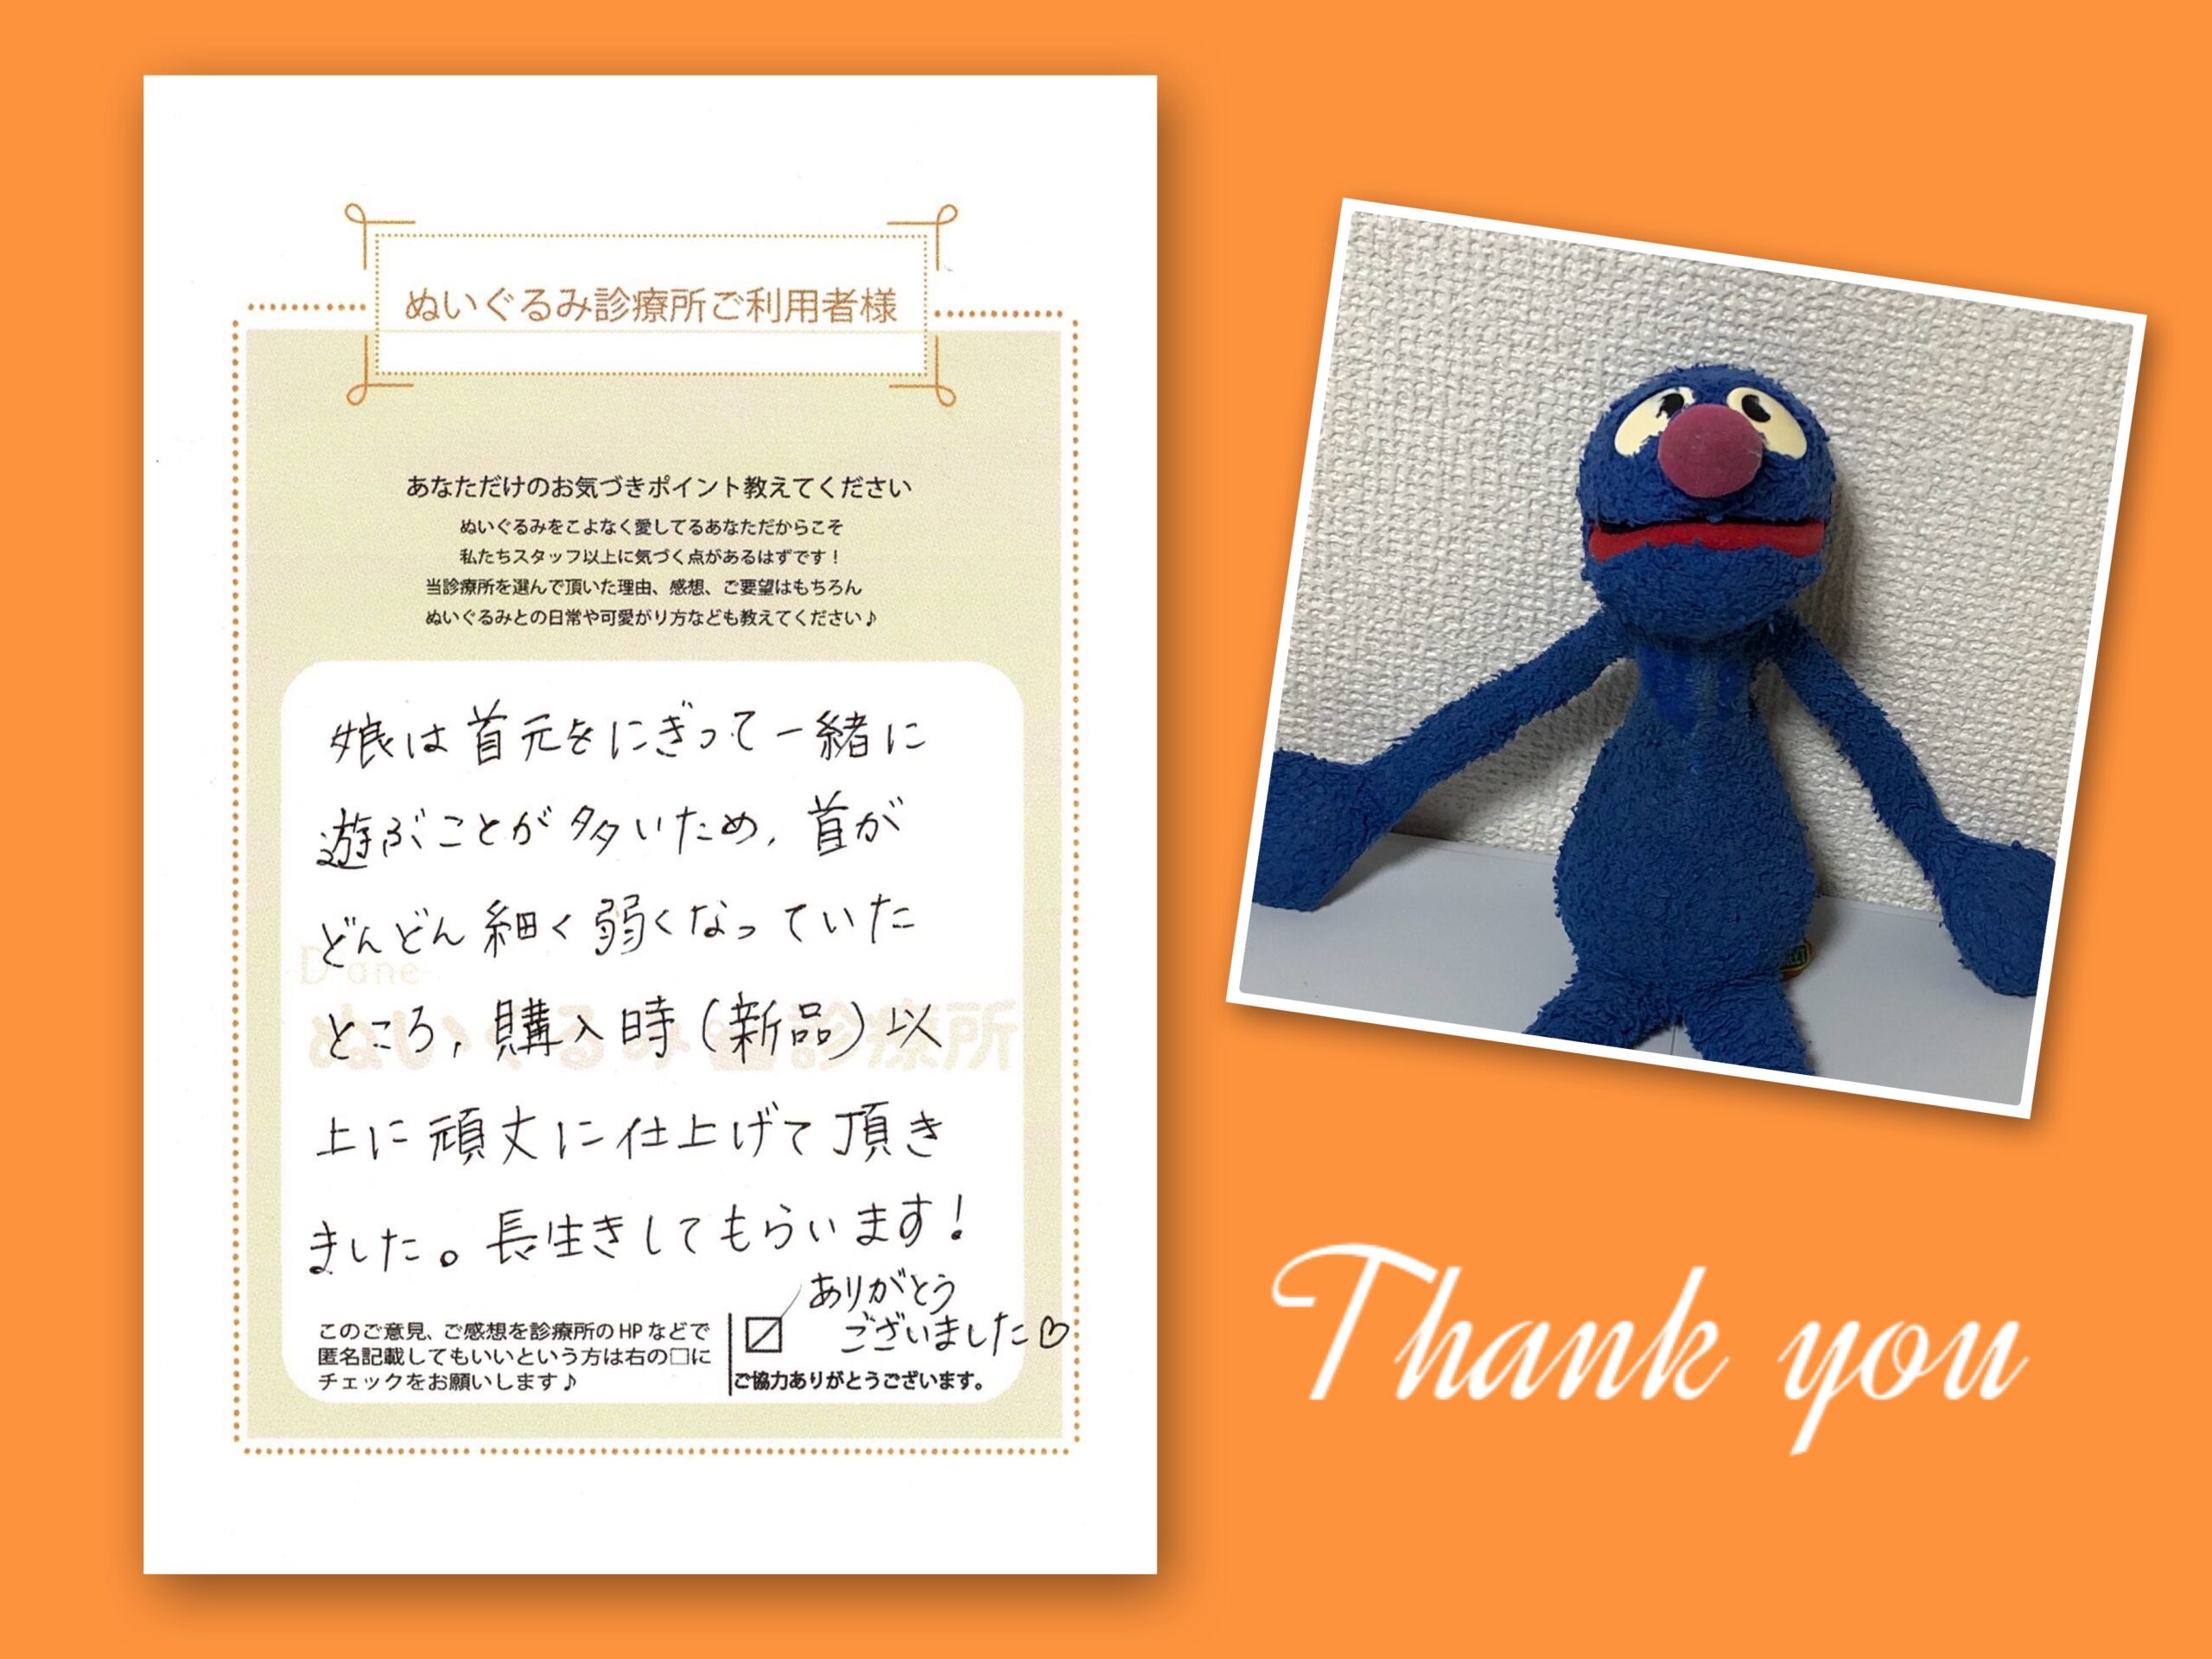 ぬいぐるみ診療所ご利用者様
あなただけのお気づきポイント教えてください
ぬいぐるみをこよなく愛してるあなただからこそ
私たちスタッフ以上に気づく点があるはずです！
当診療所を選んで頂いた理由、感想、ご要望はもちろん
ぬいぐるみとの日常や可愛がり方なども教えてください♪
娘は首元をにぎって一緒に
遊ぶことが多いため、首が
どんどん細く弱くなっていた
ところ、購入時(新品)以
上に頑丈に仕上げて頂き
ました。長生きしてもらいます！
ありがとう
ございました♡
D'ane
ぬいぐるみ診療所
このご意見、ご感想を診療所のHPなどで
匿名記載してもいいという方は右の□に
チェックをお願いします♪
ご協力ありがとうございます。
Thank you